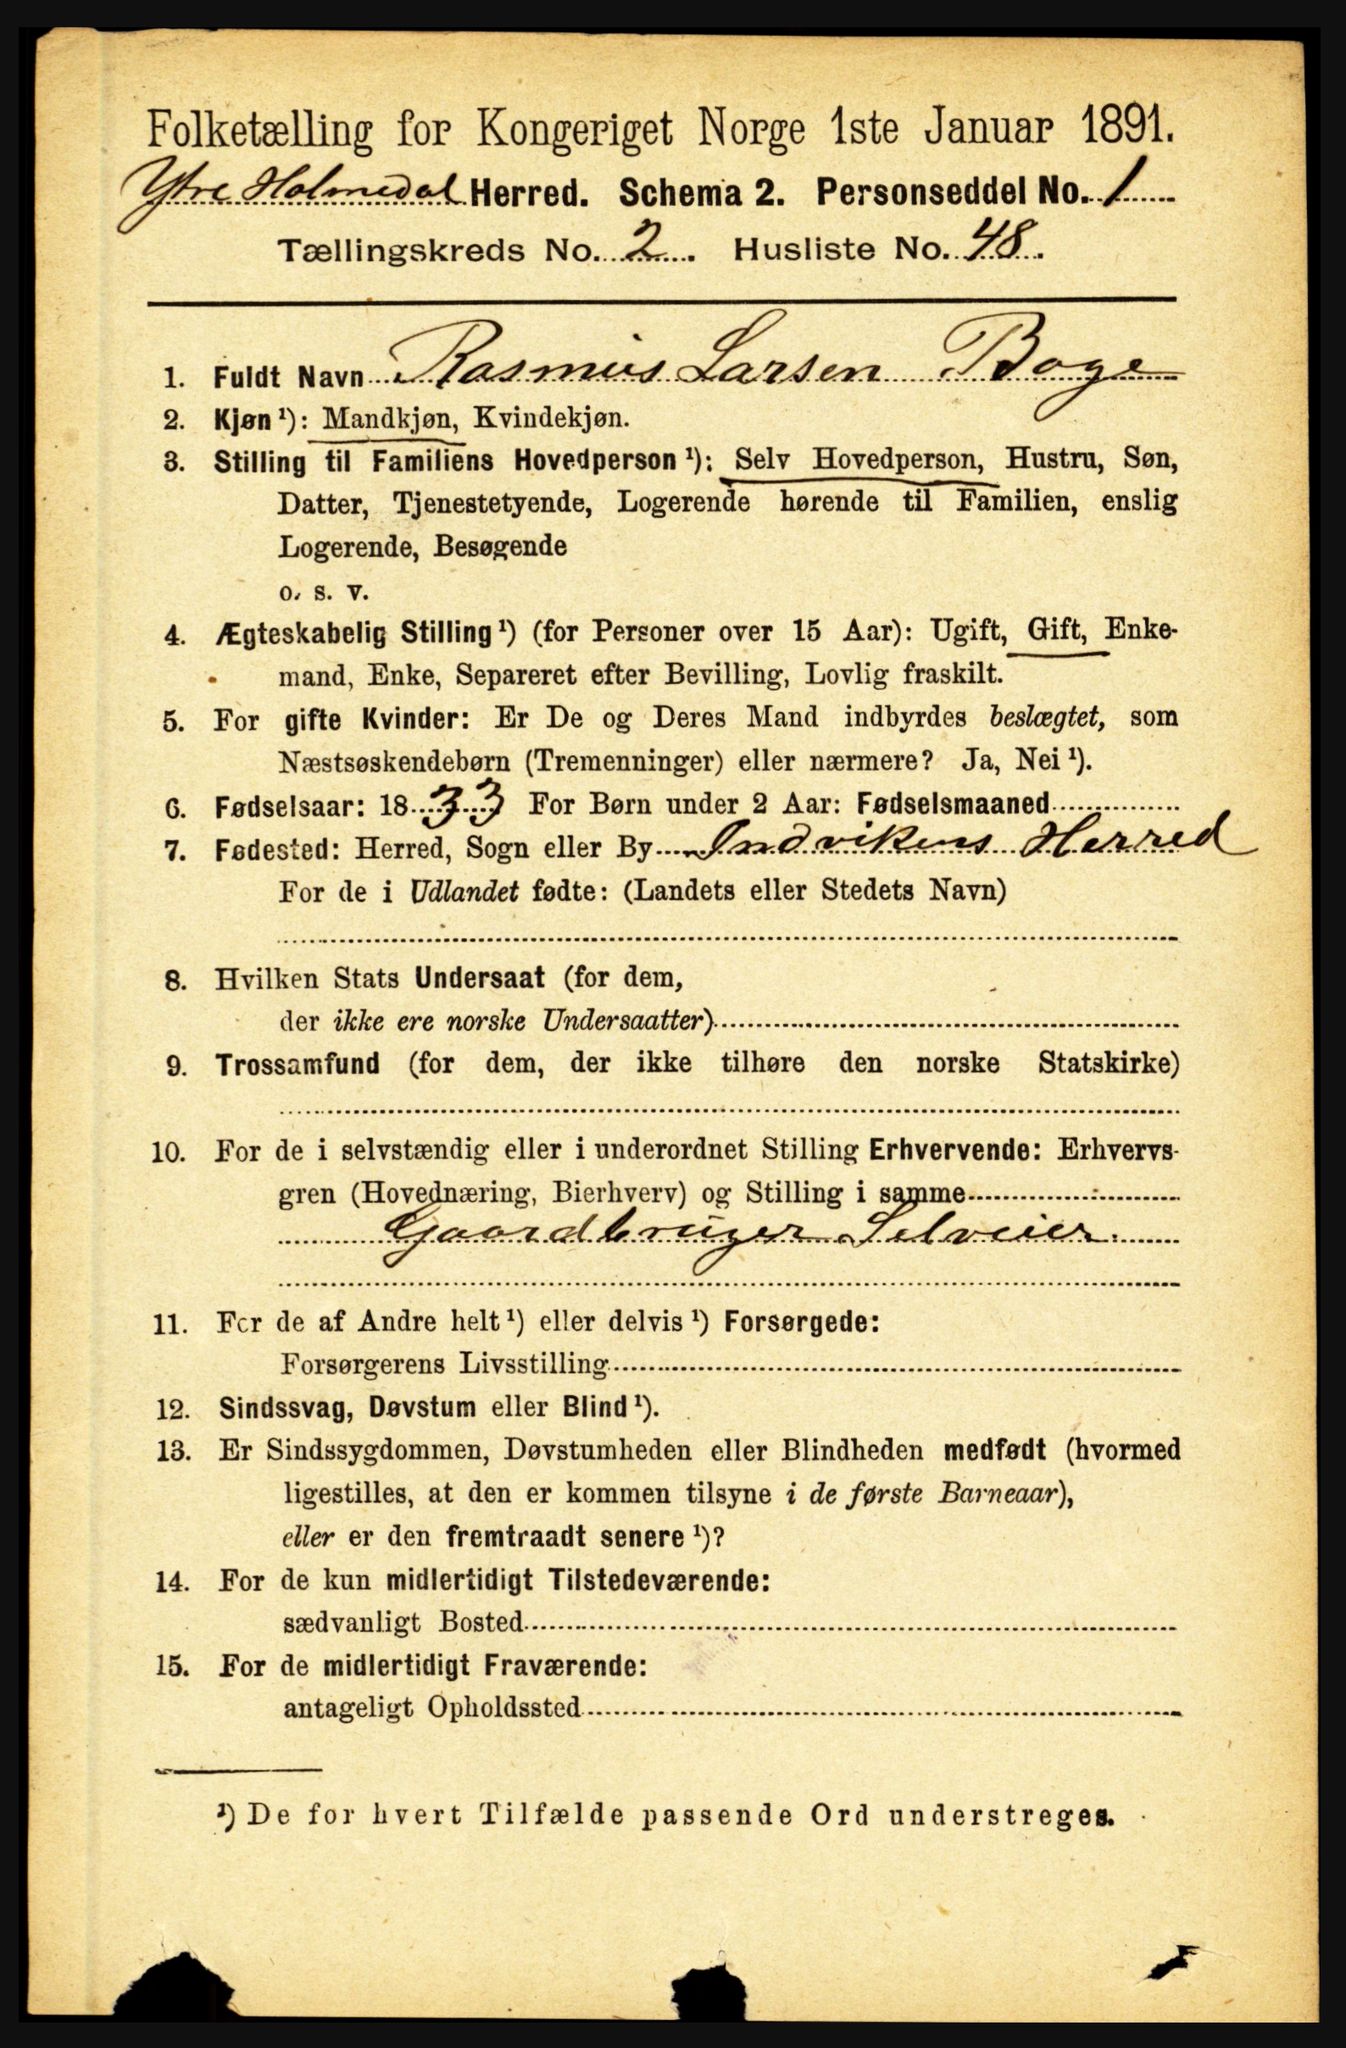 Folketælling for Kongeriget Norge 1ste Januar 1891.
Ytre Holmedal Herred. Schema 2. Personseddel No. 1
Tællingskreds No. 2. Husliste No. 48.
1. Fuldt Navn Rasmus Larsen Boge
2. Kjøn ¹): Mandkjøn, Kvindekjøn.
3. Stilling til Familiens Hovedperson ¹): Selv Hovedperson, Hustru, Søn,
Datter, Tjenestetyende, Logerende hørende til Familien, enslig
Logerende, Besøgende
o. s. v.
4. Ægteskabelig Stilling ¹) (for Personer over 15 Aar): Ugift, Gift, Enke-
mand, Enke, Separeret efter Bevilling, Lovlig fraskilt.
5. For gifte Kvinder: Er De og Deres Mand indbyrdes beslægtet, som
Næstsøskendebørn (Tremenninger) eller nærmere? Ja, Nei ¹).
6. Fødselsaar: 1833 For Børn under 2 Aar: Fødselsmaaned
7. Fødested: Herred, Sogn eller By Indvikens Herred
For de i Udlandet fødte: (Landets eller Stedets Navn)
8. Hvilken Stats Undersaat (for dem,
der ikke ere norske Undersaatter)
9. Trossamfund (for dem, der ikke tilhøre den norske Statskirke)
10. For de i selvstændig eller i underordnet Stilling Erhvervende: Erhvervs-
gren (Hovednæring, Bierhverv) og Stilling i samme
Gaardbruger Selveier
11. For de af Andre helt ¹) eller delvis ¹) Forsørgede:
Forsørgerens Livsstilling
12. Sindssvag, Døvstum eller Blind ¹).
13. Er Sindssygdommen, Døvstumheden eller Blindheden medfødt (hvormed
ligestilles, at den er kommen tilsyne i de første Barneaar),
eller er den fremtraadt senere ¹)?
14. For de kun midlertidigt Tilstedeværende:
sædvanligt Bosted
15. For de midlertidigt Fraværende:
antageligt Opholdssted
¹) De for hvert Tilfælde passende Ord understreges.